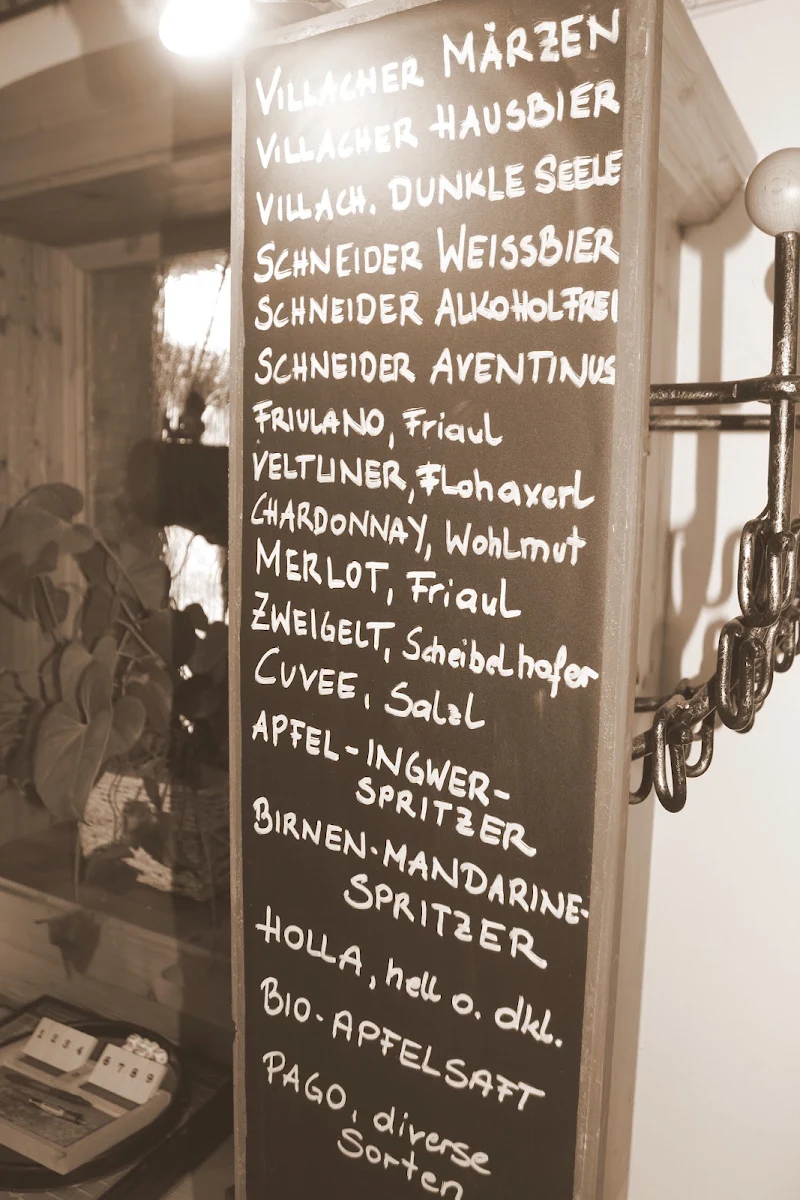 VILLACHER MÄRZEN
VILLACHER HAUSBIER
VILLACH. DUNKLE SEELE
SCHNEIDER WEISSBIER
SCHNEIDER ALKOHOLFREI
SCHNEIDER AVENTINUS
FRIULANO, Friaul
VELTLINER, Flohaxerl
CHARDONNAY, Wohlmut
MERLOT, Friaul
ZWEIGELT, Scheibelhofer
CUVEE, Salzl
APFEL-INGWER-
SPRITZER
BIRNEN-MANDARINE-
SPRITZER
HOLLA, hell o. dkl.
BIO-APFELSAFT
PAGO, diverse
Sorten
1 2 3 4
6 7 8 9